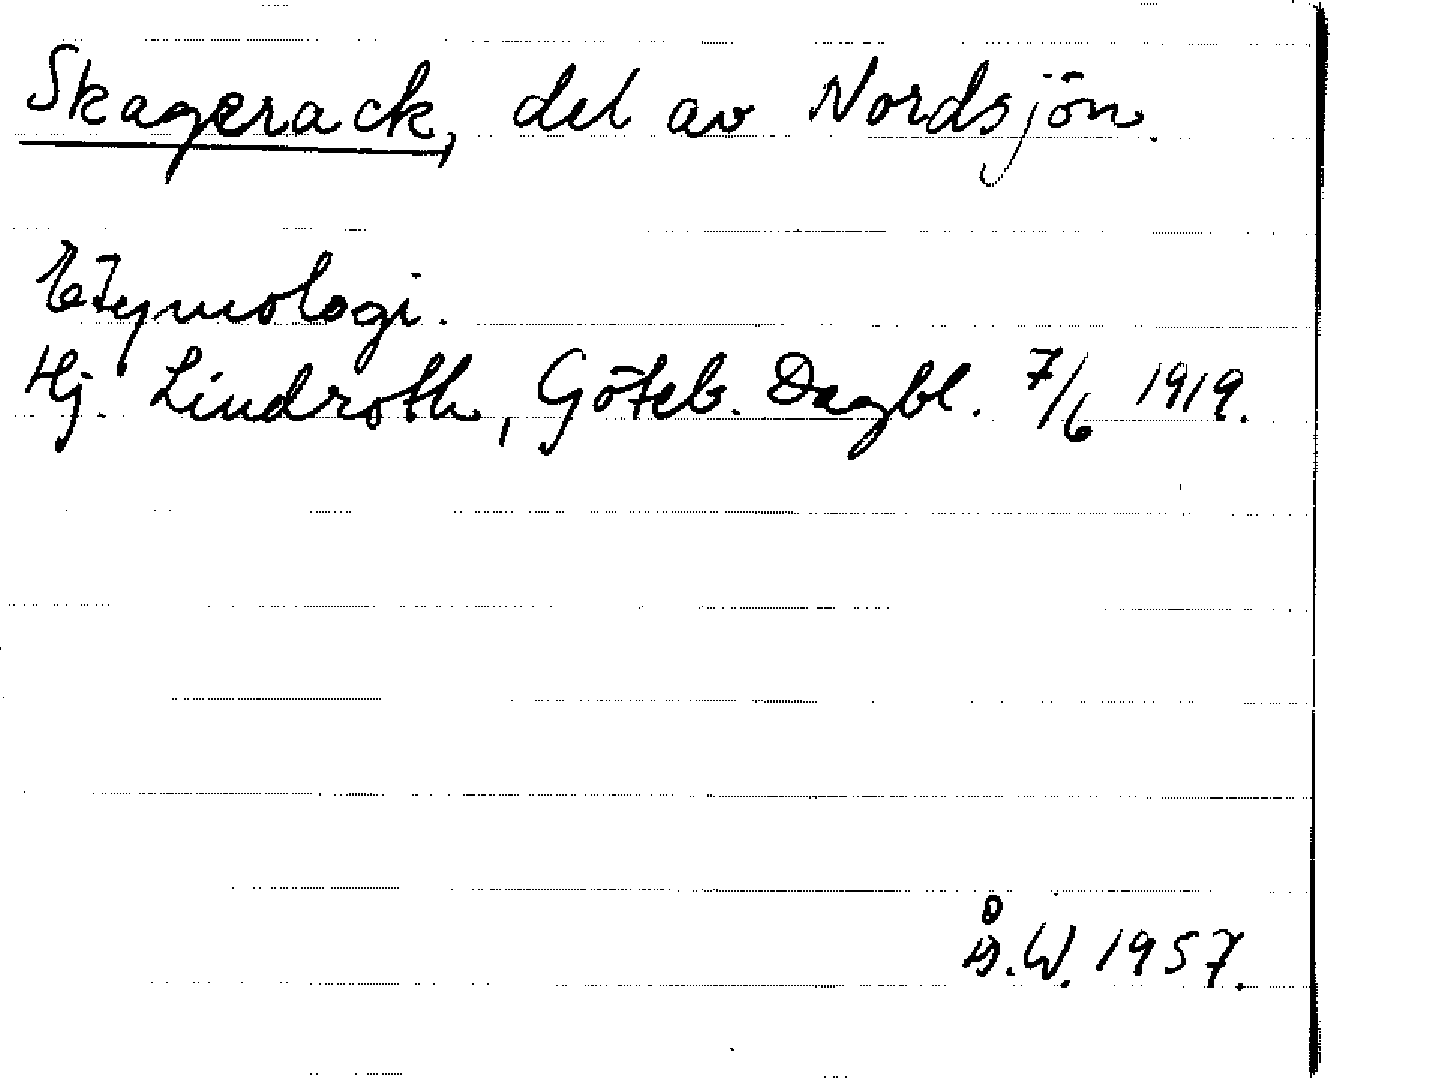 Skagerack, del av Nordsjön.
Etymologi.
Hj. Lindroth, Göteb. Dagbl. 7/6 1919.
Å.W. 1957.